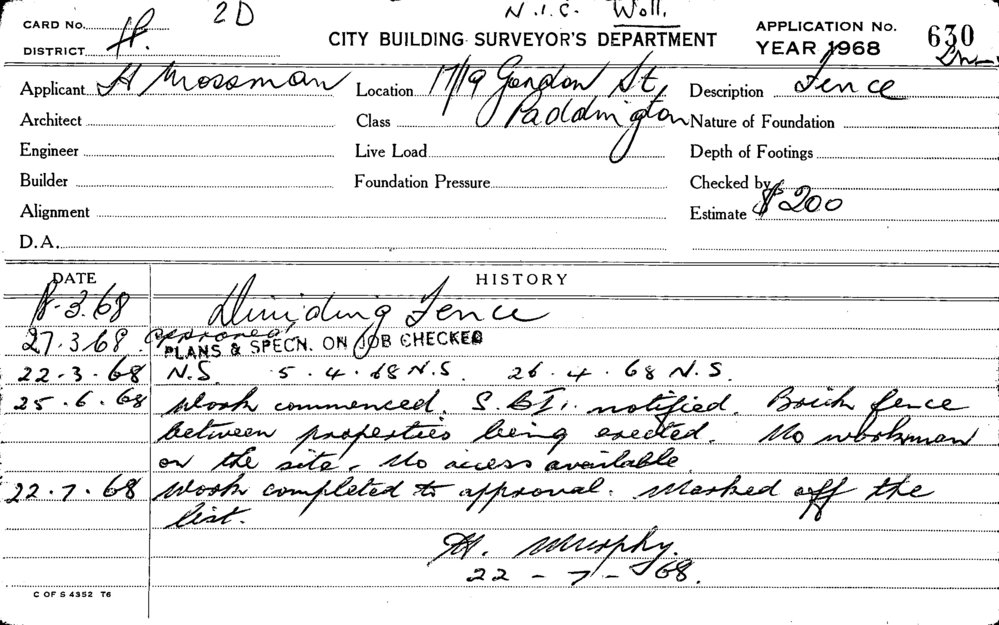 2D N.I.C. Woll.
CARD No. APPLICATION No. 630
DISTRICT H. CITY BUILDING SURVEYOR'S DEPARTMENT YEAR 1968
Applicant H Mossman Location 17/19 Gordon St, Description Fence
Architect Class Paddington Nature of Foundation
Engineer Live Load Depth of Footings
Builder Foundation Pressure Checked by
Alignment Estimate $200
D.A.
DATE HISTORY
8.3.68 Dividing Fence
27.3.68 approved PLANS & SPECN. ON JOB CHECKED
22.3.68 N.S. 5.4.68 N.S. 26.4.68 N.S.
25.6.68 Work commenced. S.B.I. notified. Brick fence
between properties being erected. No workmen
on the site. No access available
22.7.68 Work completed to approval. Marked off the
list.
H. Murphy.
22-7-68.
C OF S 4352 T6